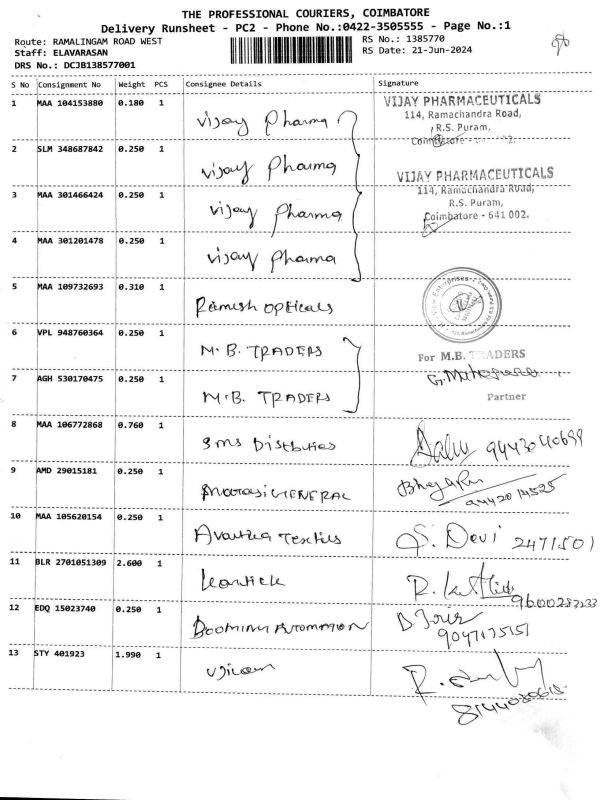 THE PROFESSIONAL COURIERS, COIMBATORE
Delivery Runsheet - PC2 - Phone No.:0422-3505555 - Page No.:1
Route: RAMALINGAM ROAD WEST
RS No.: 1385770
Staff: ELAVARASAN
RS Date: 21-Jun-2024
DRS No.: DCJB138577001
S No Consignment No Weight PCS Consignee Details Signature
1 MAA 104153880 0.180 1 Vijay Pharma
VIJAY PHARMACEUTICALS
114, Ramachandra Road,
R.S. Puram,
2 SLM 348687842 0.250 1 Vijay Pharma
VIJAY PHARMACEUTICALS
114, Ramachandra Road,
3 MAA 301466424 0.250 1 Vijay Pharma
R.S. Puram,
Coimbatore - 641 002.
4 MAA 301201478 0.250 1 Vijay Pharma
5 MAA 109732693 0.310 1 Ramesh opticals
6 VPL 948760364 0.250 1 M.B. TRADERS
For M.B. TRADERS
7 AGH 530170475 0.250 1 M.B. TRADERS
Partner
8 MAA 106772868 0.760 1 Sms
9443040699
9 AMD 29015181 0.250 1 GENERAL
9442014525
10 MAA 105620154 0.250 1 S. Devi 2471501
11 BLR 2701051309 2.600 1
12 EDQ 15023740 0.250 1 BOOMING AUTOMATION
9047175151
13 STY 401923 1.990 1